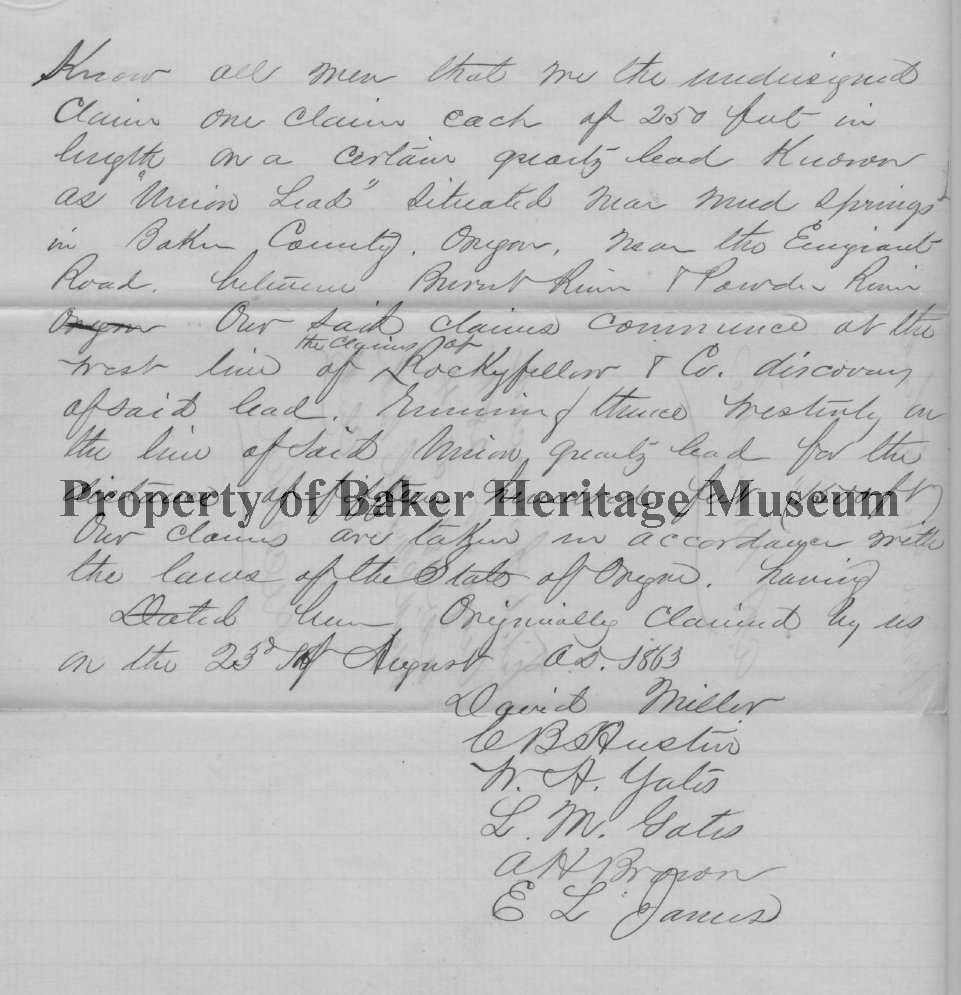 Know all men that we the undersigned
Claim one claim each of 250 feet in
length on a certain quartz lead Known
as "Union Lead" situated near mud springs
in Baker County, Oregon, near the Emigrant
Road. between Burnt River & Powder River
Oregon Our said claims commence at the
the claims at
west line of Rockyfellow & Co. discovery
of said lead. Running thence westerly on
the line of said Union quartz lead for the
distance of fifteen hundred feet (1500 ft)
Property of Baker Heritage Museum
Our claims are taken in accordance with
the laws of the State of Oregon. having
Dated been Originally claimed by us
on the 23d of August A.D. 1863
David Miller
C B Austin
W. H. Yates
L. M. Gates
A H Brown
E L James